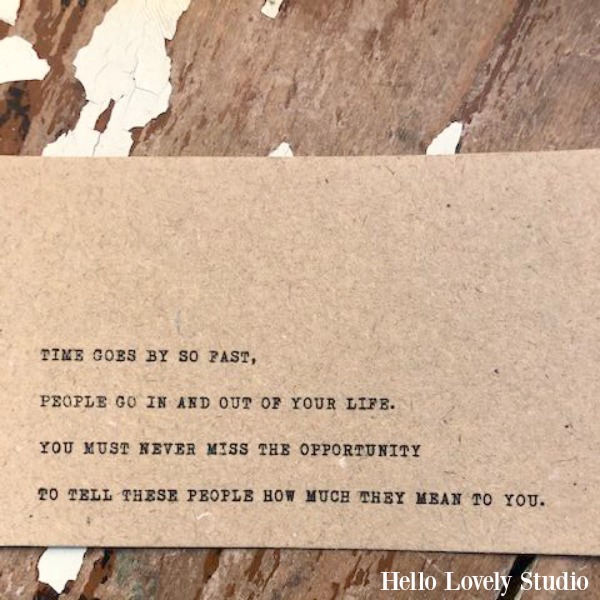 TIME GOES BY SO FAST,
PEOPLE GO IN AND OUT OF YOUR LIFE.
YOU MUST NEVER MISS THE OPPORTUNITY
TO TELL THESE PEOPLE HOW MUCH THEY MEAN TO YOU.
Hello Lovely Studio